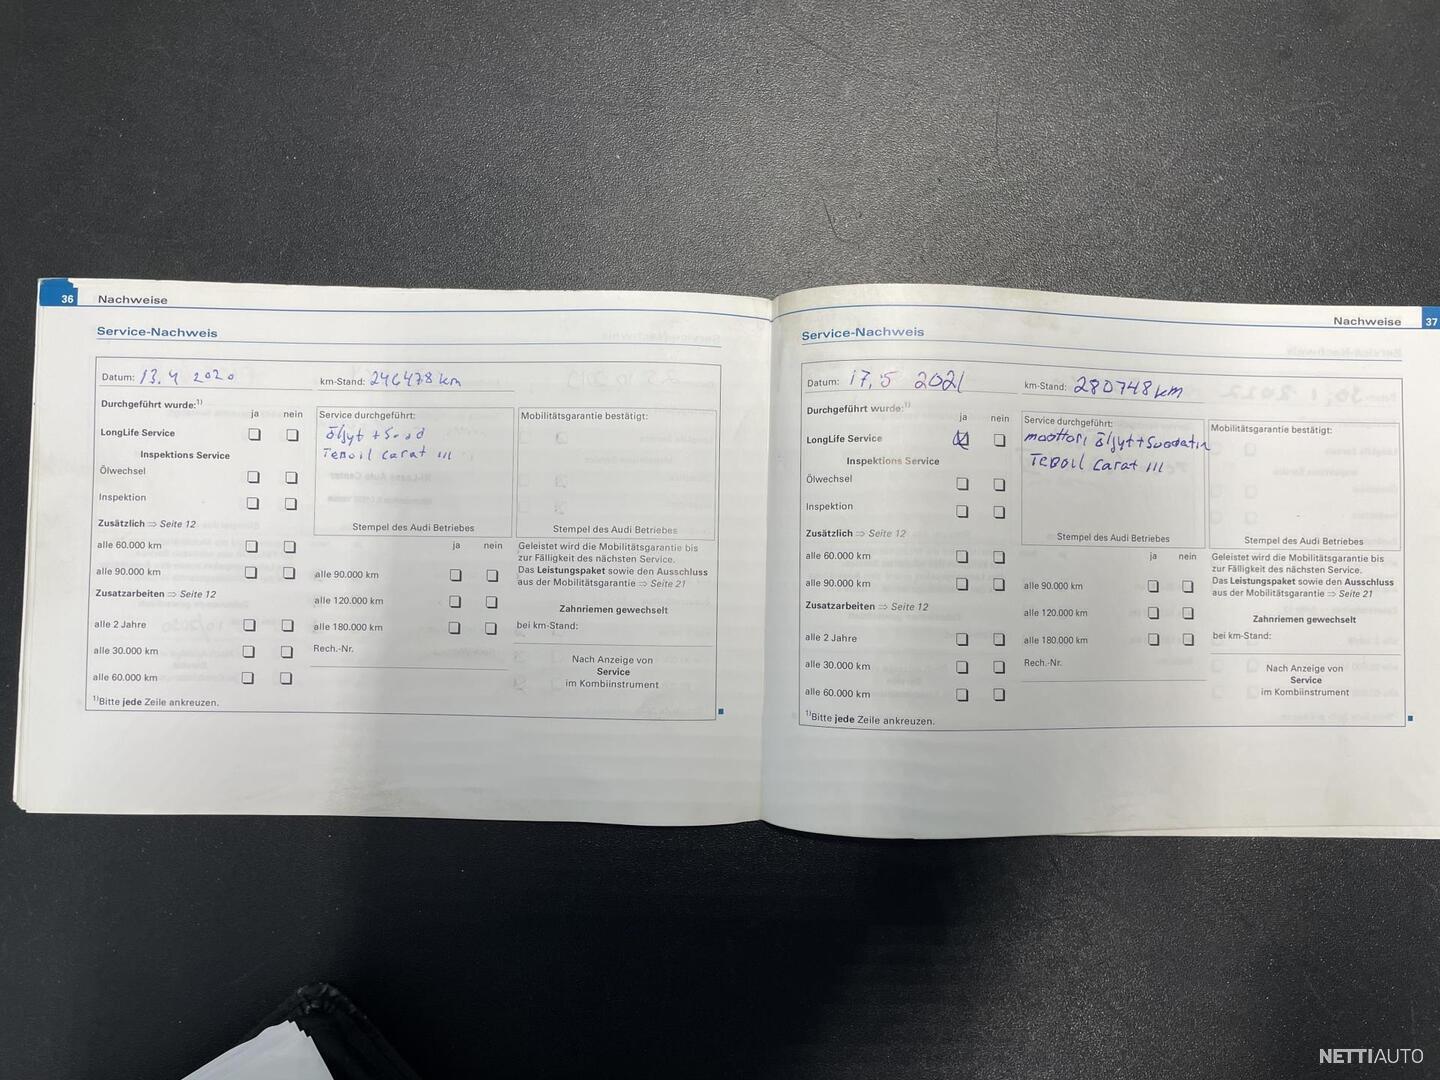 36 Nachweise
Service-Nachweis
Datum: 13.4 2020 km-Stand: 246478 km
Durchgeführt wurde:1)
ja nein
LongLife Service
Inspektions Service
Ölwechsel
Inspektion
Zusätzlich ⇒ Seite 12
alle 60.000 km
alle 90.000 km
Zusatzarbeiten ⇒ Seite 12
alle 2 Jahre
alle 30.000 km
alle 60.000 km
1)Bitte jede Zeile ankreuzen.
Service durchgeführt:
öljyt + Suod
Teboil Carat III
Stempel des Audi Betriebes
ja nein
alle 90.000 km
alle 120.000 km
alle 180.000 km
Rech.-Nr.
Mobilitätsgarantie bestätigt:
Stempel des Audi Betriebes
Geleistet wird die Mobilitätsgarantie bis
zur Fälligkeit des nächsten Service.
Das Leistungspaket sowie den Ausschluss
aus der Mobilitätsgarantie ⇒ Seite 21
Zahnriemen gewechselt
bei km-Stand:
Nach Anzeige von
Service
im Kombiinstrument
Nachweise 37
Service-Nachweis
Datum: 17,5 2021 km-Stand: 280748 km
Durchgeführt wurde:1)
ja nein
LongLife Service
Inspektions Service
Ölwechsel
Inspektion
Zusätzlich ⇒ Seite 12
alle 60.000 km
alle 90.000 km
Zusatzarbeiten ⇒ Seite 12
alle 2 Jahre
alle 30.000 km
alle 60.000 km
1)Bitte jede Zeile ankreuzen.
Service durchgeführt:
moottori öljyt + Suodatin
Teboil Carat III
Stempel des Audi Betriebes
ja nein
alle 90.000 km
alle 120.000 km
alle 180.000 km
Rech.-Nr.
Mobilitätsgarantie bestätigt:
Stempel des Audi Betriebes
Geleistet wird die Mobilitätsgarantie bis
zur Fälligkeit des nächsten Service.
Das Leistungspaket sowie den Ausschluss
aus der Mobilitätsgarantie ⇒ Seite 21
Zahnriemen gewechselt
bei km-Stand:
Nach Anzeige von
Service
im Kombiinstrument
NETTIAUTO